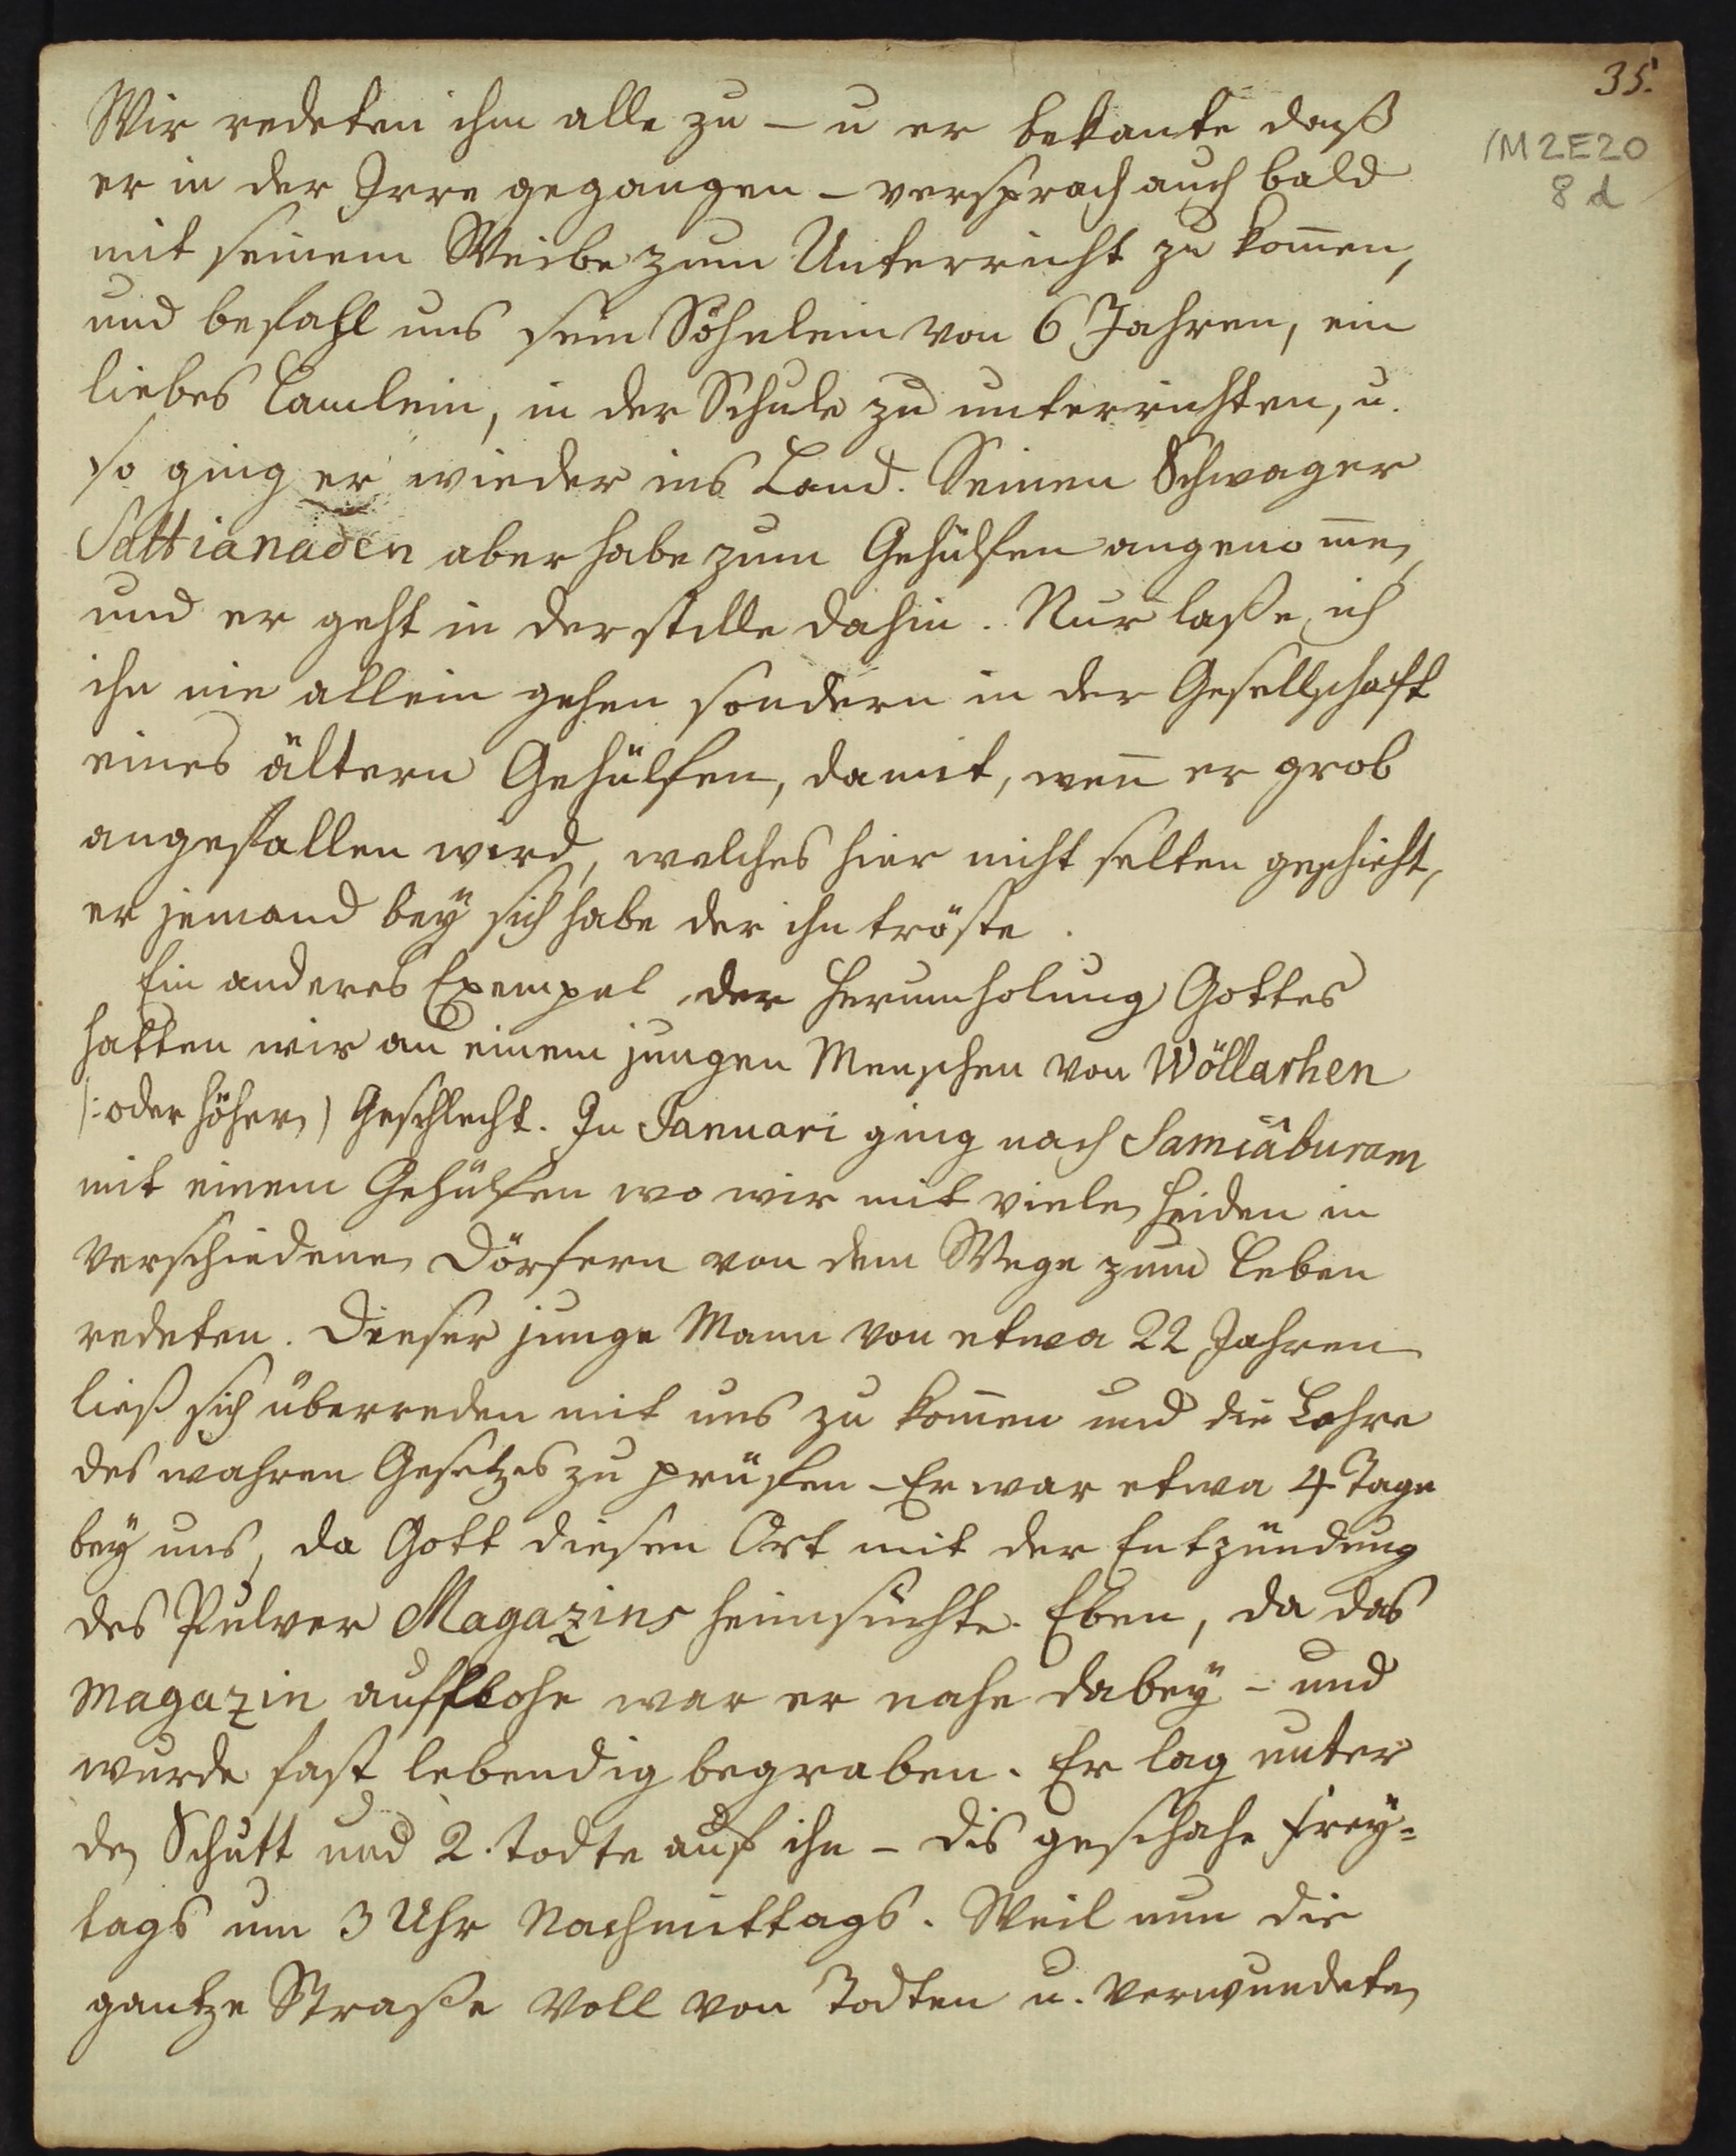 35.
1M 2E20
8 d
Wir redeten ihm alle zu – u er bekante daß
er in der Irre gegangen – versprach auch bald
mit seinem Weibe zum Unterricht zu kom̅en,
und befahl uns sein Söhnlein von 6 Jahren, ein
liebes Lamlein, in der Schule zu unterrichten, u.
so ging er wieder ins Land. Seinen Schwager
Sattianaden aber habe zum Gehülfen angenom̅en,
und er geht in der stille dahin. Nur laße ich
ihn nie allein gehen sondern in der Gesellschaft
eines ältern Gehülfen, damit, wen̅ er grob
angefallen wird, welches hier nicht selten geschieht,
er jemand beÿ sich habe der ihn tröste.
Ein anderes Exempel der Herumholung Gottes
hatten wir an einem jungen Menschen von Wöllarhen
/: oder höhern) Geschlecht. In Januari ging nach Samiâburam
mit einem Gehülfen wo wir mit vielen Heiden in
verschiedenen Dörfern von dem Wege zum Leben
redeten. Dieser junge Mann von etwa 22 Jahren
ließ sich überreden mit uns zu kom̅en und die Lehre
des wahren Gesetzes zu prüfen – Er war etwa 4 Tage
beÿ uns, da Gott diesen Ort mit der Entzündung
des Pulver Magazins heimsuchte. Eben, da das
Magazin aufflohe war er nahe dabeÿ – und
wurde fast lebendig begraben. Er lag unter
den Schutt und 2. todte auf ihn – dis geschahe freÿ=
tags um 3 Uhr Nachmittags. Weil nun die
gantze Straße voll von Todten u. verwundeten